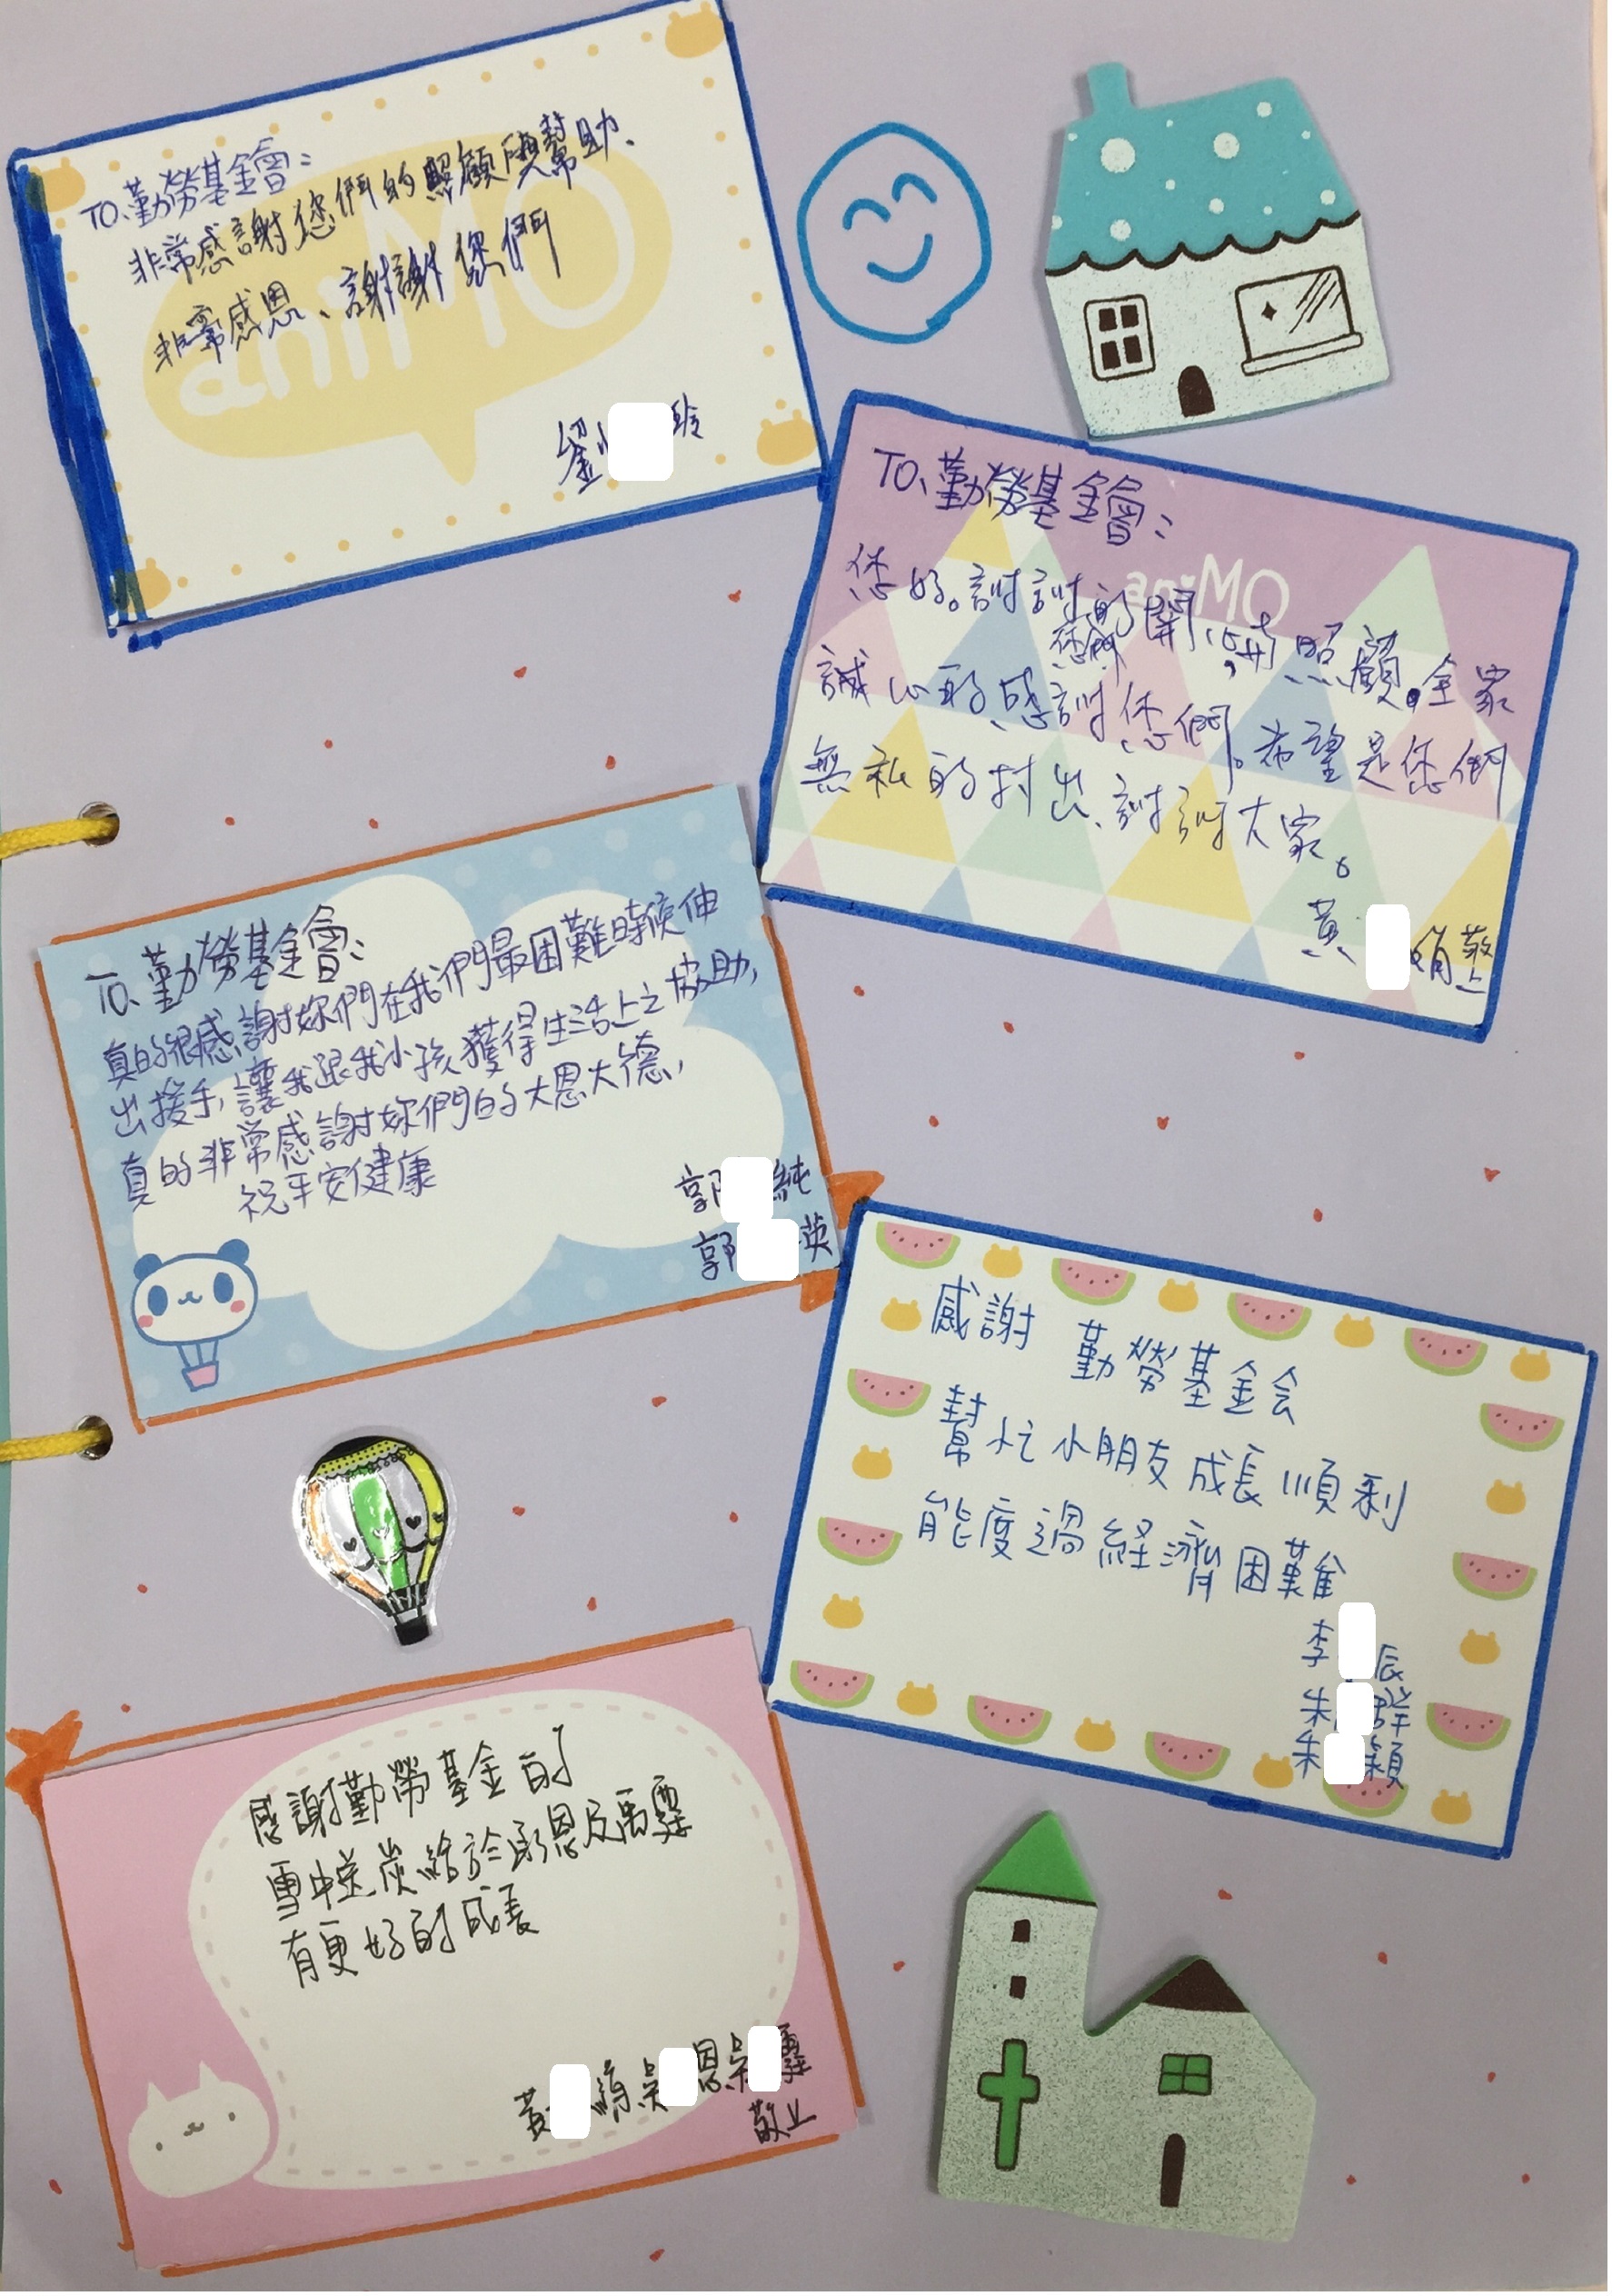 TO、勤勞基金會：
非常感謝您們的照顧與幫助、
非常感恩、謝謝您們
劉 玲
aniMO
TO、勤勞基金會：
您好。謝謝您們的關心與照顧。全家
誠心的感謝您們。希望是您們
無私的付出、謝謝大家。
黃 敬上
aniMO
TO、勤勞基金會：
真的很感謝妳們在我們最困難時候伸
出援手，讓我跟我小孩獲得生活上之協助，
真的非常感謝妳們的大恩大德，
祝平安健康
郭 純
郭 英
感謝 勤勞基金会
幫忙小朋友成長順利
能度過経濟困難
李 辰
朱 群
朱 穎
感謝勤勞基金的
雪中送炭給於承恩及禹霏
有更好的成長
黃 吳 恩吳
敬上